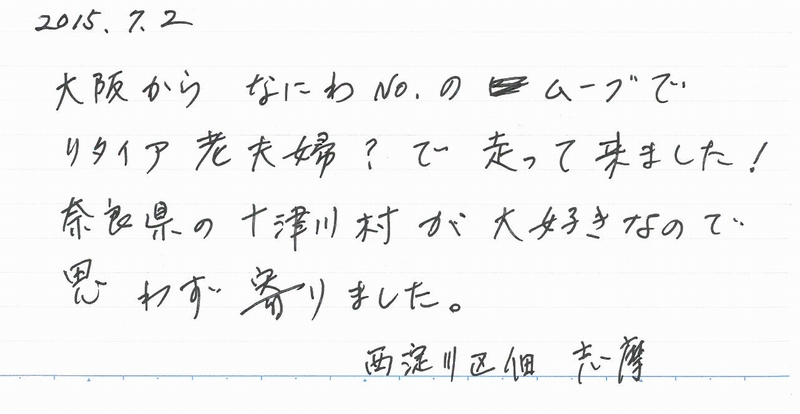 2015.7.2
大阪から なにわNo.の ムーブで
リタイア老夫婦?で走って来ました!
奈良県の十津川村が大好きなので
思わず寄りました。
西淀川区佃 志摩